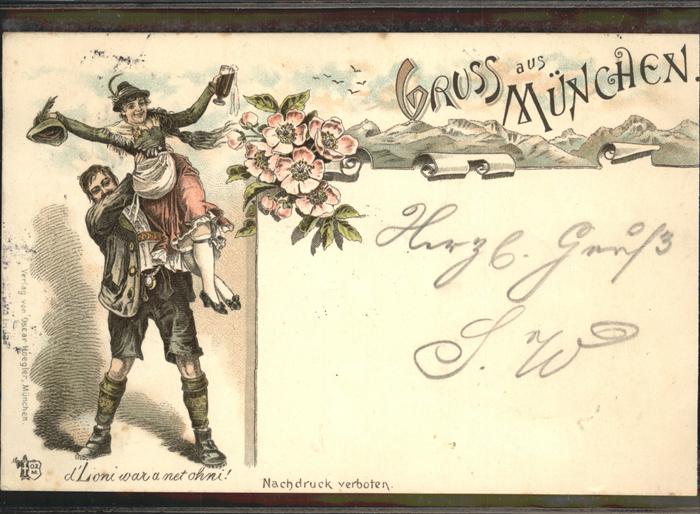 GRUSS aus
MÜNCHEN
Herzl. Gruß
S. W
Verlag von Oscar Hoegler, München.
d'Loni war a net ohni!
Nachdruck verboten.